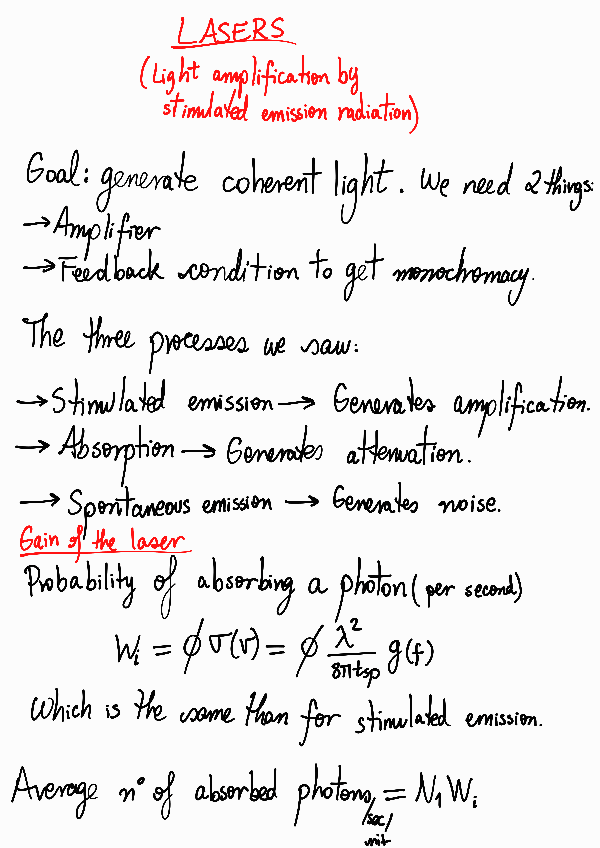 LASERS
(Light amplification by
stimulated emission radiation)
Goal: generate coherent light. We need 2 things:
→ Amplifier
→ Feedback condition to get monochromacy.
The three processes we saw:
→ Stimulated emission → Generates amplification.
→ Absorption → Generates attenuation.
→ Spontaneous emission → Generates noise.
Gain of the laser
Probability of absorbing a photon (per second)
Wᵢ = ϕ σ(ν) = ϕ λ²/(8πtsp) g(f)
Which is the same than for stimulated emission.
Average nº of absorbed photons/sec/unit = N₁Wᵢ